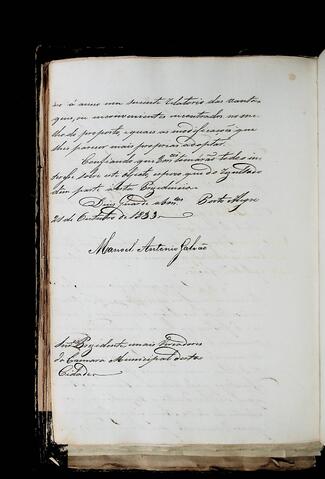 ra á anno um sucinto relatorio das vanta-
gens, ou inconvenientes encontrados no me-
thodo proposto, e quaes as modificações que
lhes parecer mais proprias adoptar.
Confiando que Vmces tomarão todo o in-
teresse sobre este objecto, espero que do rezultado
dem parte a esta Prezidencia.
Deos Guarde a Vmces Porto Alegre
21 de Outubro de 1833.
Manoel Antonio Galvão
Snrs Prezidente e mais Vereadores
da Camara Municipal desta
Cidade